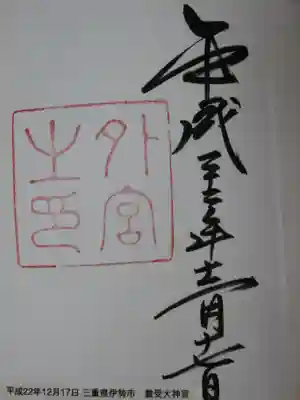 平成二十二年十二月十七日
外宮
之印
平成22年12月17日 三重県伊勢市　豊受大神宮